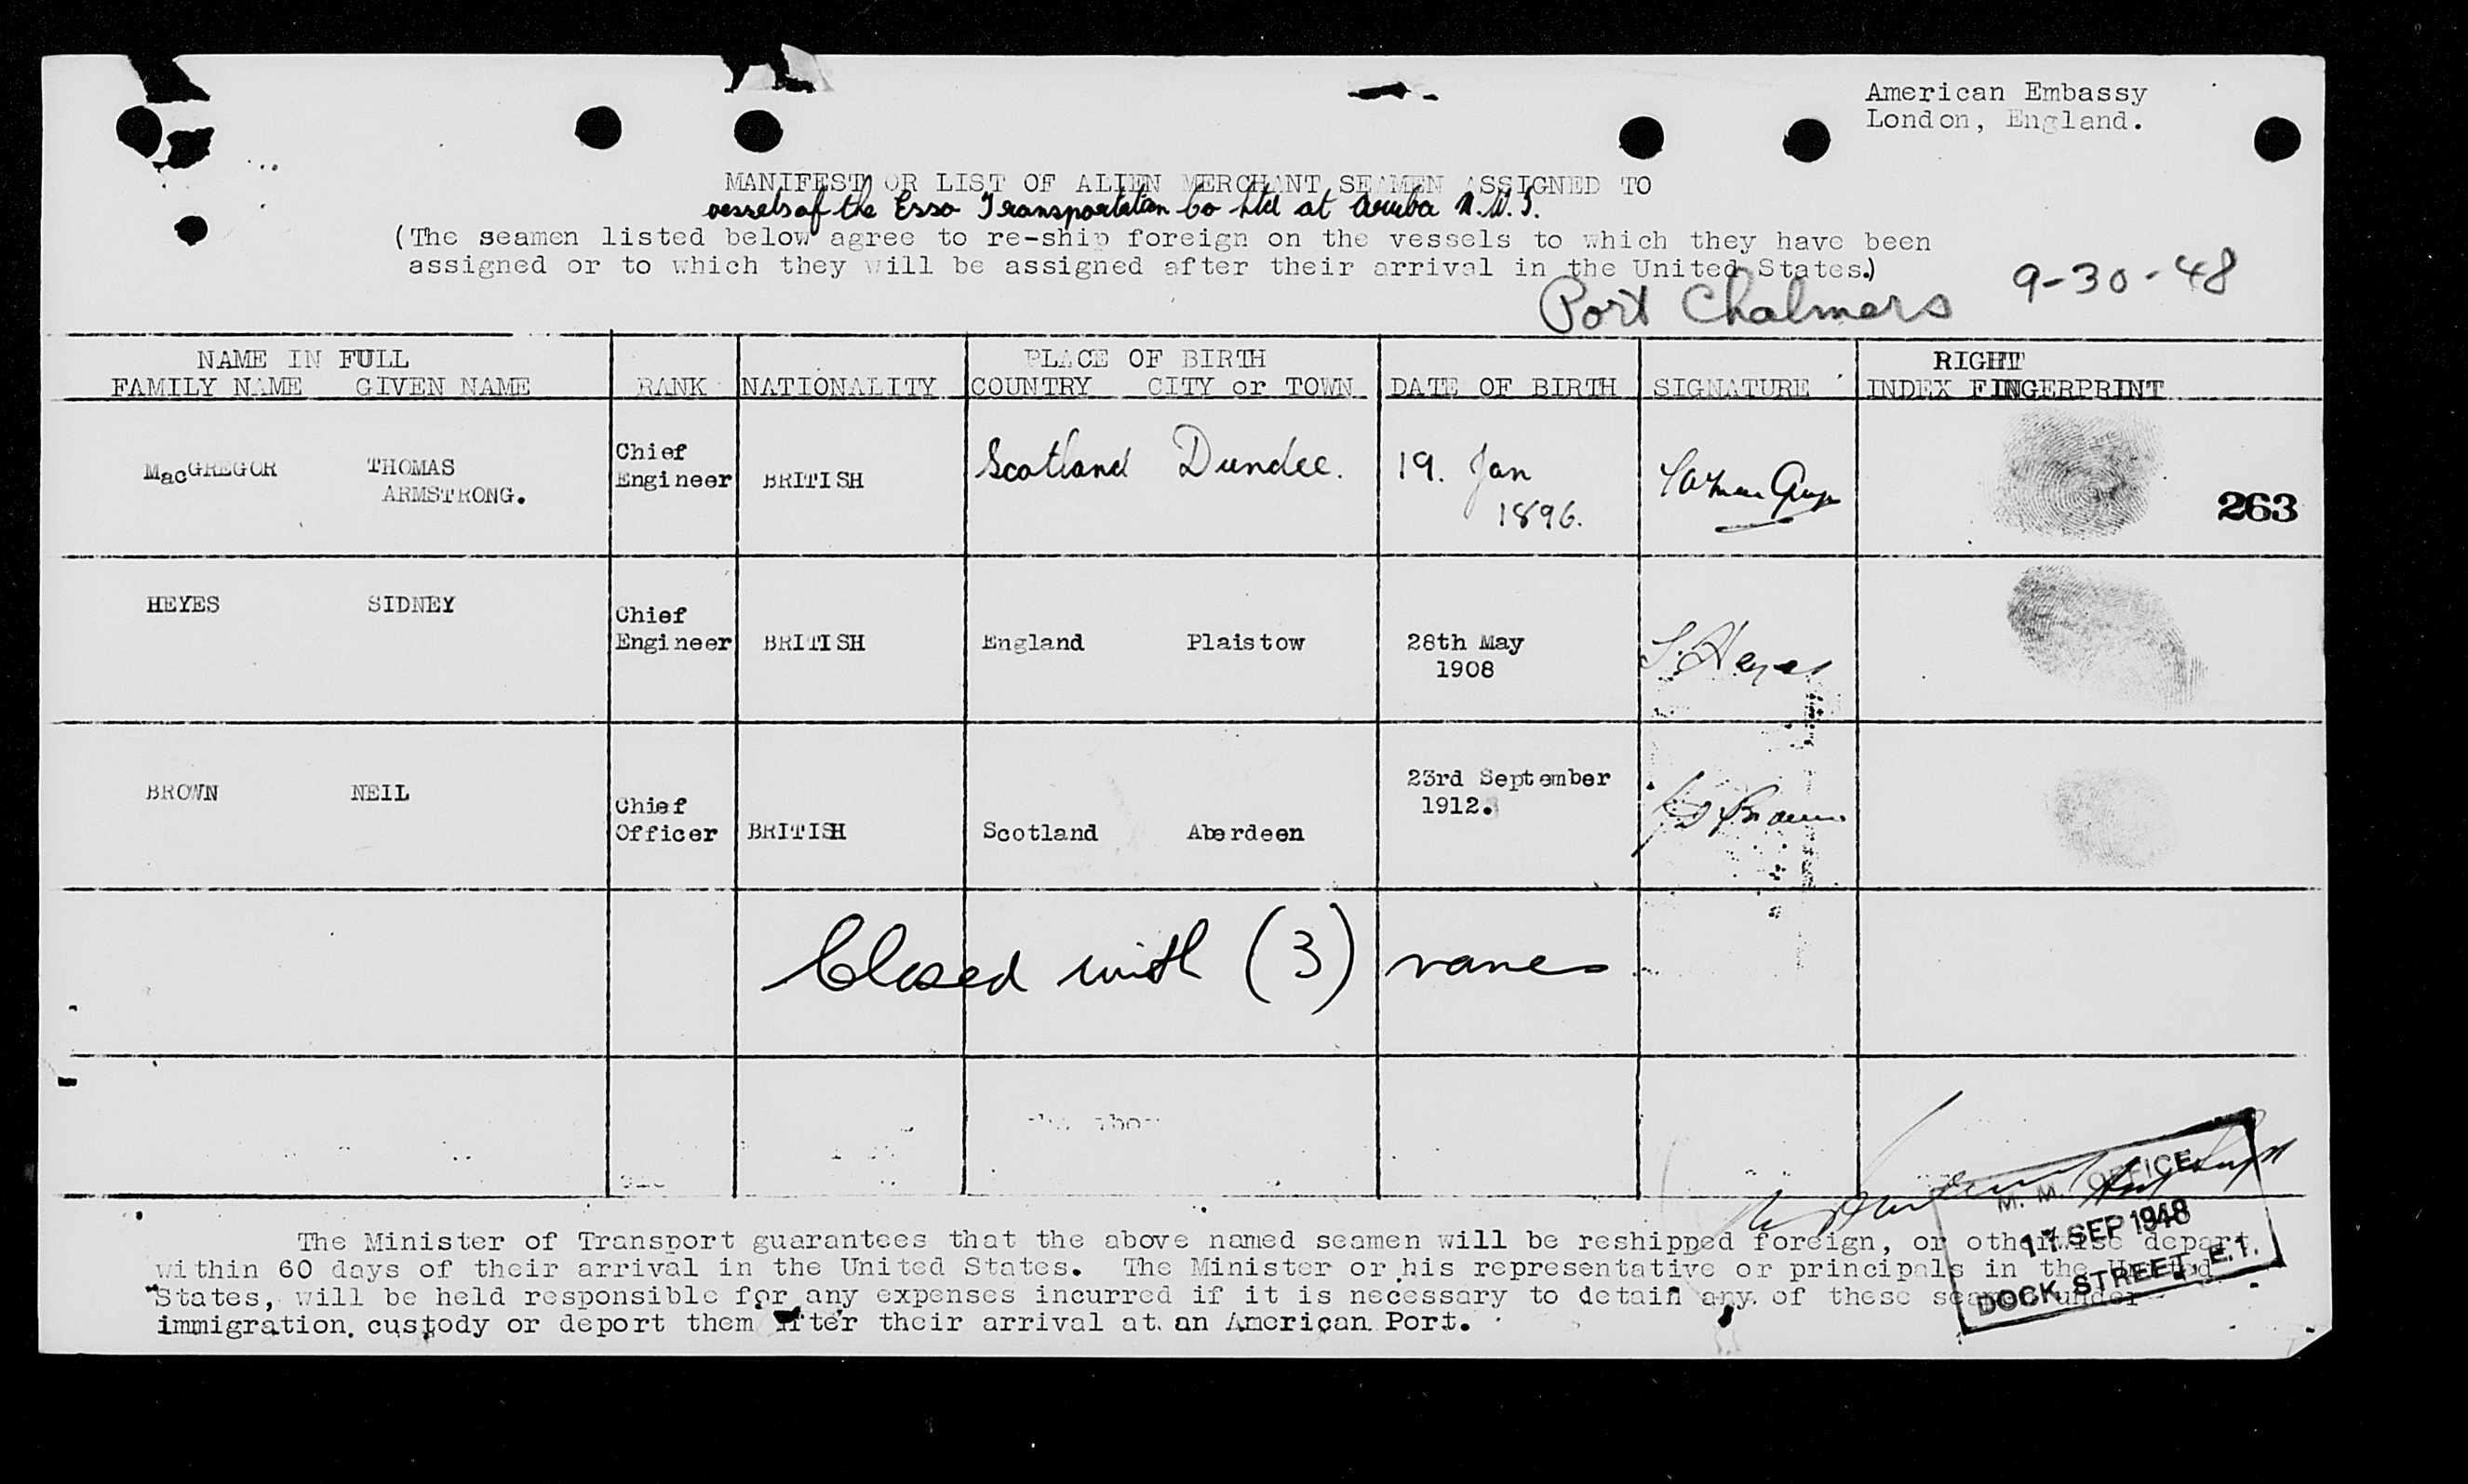 American Embassy
London, England.
MANIFEST OR LIST OF ALIEN MERCHANT SEAMEN ASSIGNED TO
vessels of the Esso Transportation Co Ltd at Aruba N.W.I.
(The seamen listed below agree to re-ship foreign on the vessels to which they have been
assigned or to which they will be assigned after their arrival in the United States.)
Port Chalmers 9-30-48
NAME IN FULL PLACE OF BIRTH RIGHT
FAMILY NAME GIVEN NAME RANK NATIONALITY COUNTRY CITY or TOWN DATE OF BIRTH SIGNATURE INDEX FINGERPRINT
MacGREGOR THOMAS ARMSTRONG. Chief Engineer BRITISH Scotland Dundee. 19. Jan 1896. 263
HEYES SIDNEY Chief Engineer BRITISH England Plaistow 28th May 1908 S. Heyes
BROWN NEIL Chief Officer BRITISH Scotland Aberdeen 23rd September 1912. Brown
Closed with (3) names
M. M. OFFICE
17 SEP 1948
DOCK STREET, E.1.
The Minister of Transport guarantees that the above named seamen will be reshipped foreign, or otherwise depart
within 60 days of their arrival in the United States. The Minister or his representative or principals in the United
States, will be held responsible for any expenses incurred if it is necessary to detain any of these seamen under
immigration custody or deport them after their arrival at an American Port.